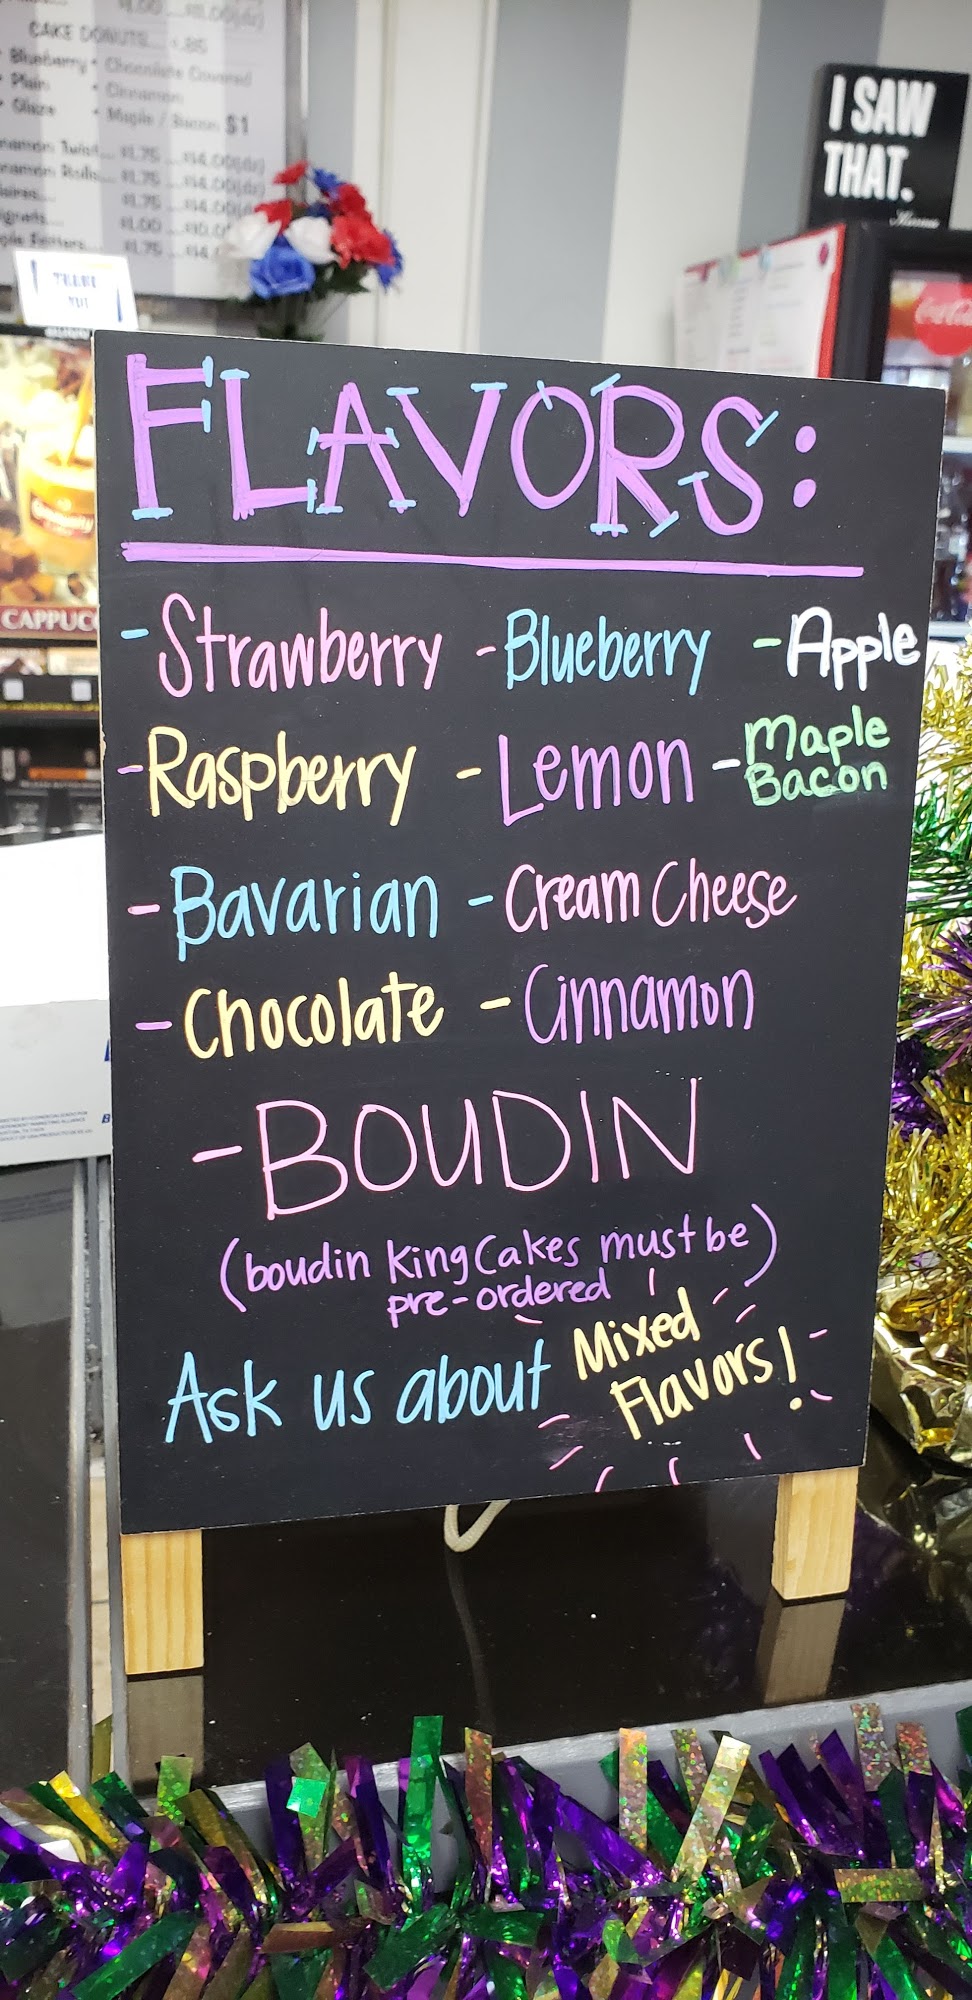 CAKE DONUTS... .85
• Blueberry • Chocolate Covered
• Plain • Cinnamon
• Glaze • Maple / Bacon $1
THANK
YOU
I SAW
THAT.
Karma
Coca-Cola
CAPPUC
FLAVORS:
- Strawberry - Blueberry - Apple
- Raspberry - Lemon - Maple
Bacon
- Bavarian - Cream Cheese
- Chocolate - Cinnamon
- BOUDIN
(boudin King Cakes must be)
pre-ordered
Ask us about Mixed
Flavors!